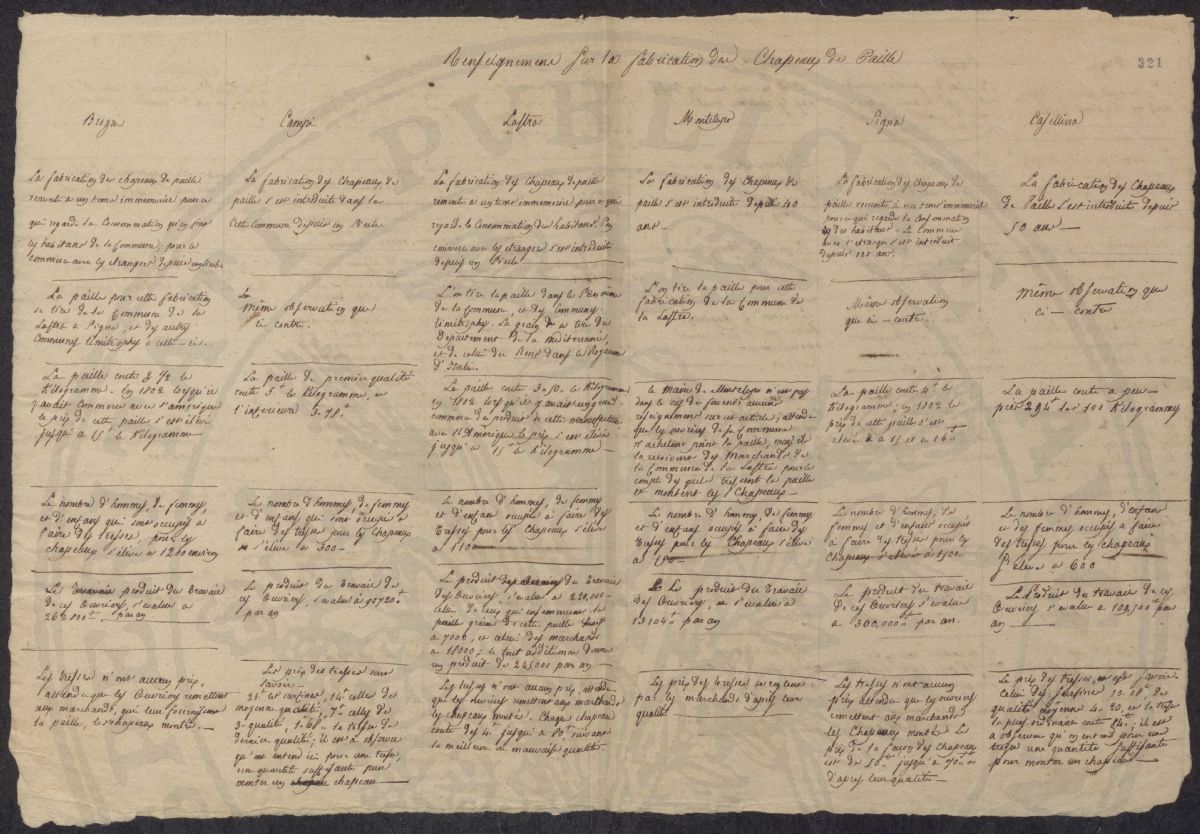 Renseignemens sur la fabrication des Chapeaux de Paille
321
Brozzi
La fabrication des chapeaux de paille
remonte a un tems immemoire pour ce
qui regarde la Consommation qu'en font
les habitans de la Commune; pour le
commerce avec les etrangers depuis un Siecle
La paille pour cette fabrication
se tire de la Commune de la
Lastra a Signa, et des autres
Communes limitrophes a celle-ci.
La paille coute 8 1/2 le
Kilogramme. En 1802 lorsqu'il
y avait commerce avec l'amerique
le prix de cette paille s'est élevé
jusqu'a 15 le Kilogramme
Le nombre d'hommes, de femmes
et d'enfans qui sont occupés a
faire des tresses, pour les
chapeaux s'élève a 1260 environ
Le produit du Travail
de ces Ouvriers, s'evalue a
262100 par an
Les tresses n'ont aucun prix,
attendu que les Ouvriers remettent
aux marchands, qui leur fournissent
la paille, les chapeaux montés.
Campi
La fabrication des Chapeaux de
paille s'est introduite dans la
Cette Commune depuis un Siecle
La
même observation que
ci contre.
La paille de premiere qualité
coute 5 le Kilogramme, et
l'inferieure 3.78
Le nombre d'hommes, de femmes
et d'enfans qui sont occupés a
faire des tresses pour les Chapeaux
s'élève a 300
Le produit du Travail de
ces Ouvriers, s'evalue a 90720
par an
Les prix des tresses sont
Savoir
21 les surfines, 14 celles de
moyenne qualité, 7 celles de
3e qualité, 1.68 la tresse de
derniere qualité; il est a observer
qu'on entend ici pour une tresse,
une quantité suffisante pour
monter un chapeau
Lastra
La fabrication des Chapeaux de paille
remonte a un tems immemoire pour ce qui
regarde la Consommation des habitans. Son
commerce avec les etrangers s'est introduite
depuis un Siecle
L'on tire la paille dans le
de la Commune, et des Communes
limitrophes. La graine se tire du
Departement de la mediterranée,
et de celui du Reno dans le Royaume
d'Italie.
La paille coute 3.50 le Kilogramme
en 1802 lorsqu'il y avait un grand
commerce du produit de cette manufacture
avec l'Amerique le prix s'est élevé
jusqu'a 15 le Kilogramme
Le nombre d'hommes, de femmes
et d'enfans occupés à faire des
Tresses pour les Chapeaux s'élève
a 1100
Le produit du Travail
des Ouvriers, s'evalue a 220,000
celui de ceux qui emploient la
paille graine de cette paille
a 7000, et celui des marchands
a 18000; le tout additionné donne
un produit de 245000 par an
Les tresses n'ont aucun prix, attendu
que les Ouvriers remettent aux marchands
les chapeaux montés. Chaque chapeau
coute des 4 jusqu'à 80 suivant
la meilleure ou mauvaise qualité.
Montelupo
La fabrication des Chapeaux de
paille s'est introduite depuis 40
ans
L'on tire la paille pour cette
fabrication de la Commune de
la Lastra.
Le Maire de Montelupo n'est pas
dans le cas de fournir aucun
reseignement sur cet article; attendu
que les ouvriers de sa Commune
n'achetent point la paille, mais ils
la reçoivent des Marchands de
la Commune de la Lastra pour le
compte desquels tressent la paille
et montent les Chapeaux
Le nombre d'hommes, de femmes
et d'enfans occupés à faire des
Tresses pour les Chapeaux s'élève
a
Le produit du Travail
des Ouvriers, se s'evalue a
13104 par an
Les prix des tresses se regleve
par les marchands d'après leur
qualité
Signa
La fabrication des Chapeaux de
paille remonte à un tems immemoire
pour ce qui regarde la Consommation
des habitans. Le Commerce
avec l'etranger s'est introduit
depuis 100 ans.
Même observation
que ci-contre.
La paille coute 4 le
Kilogramme; en 1802 le
prix de cette paille s'est
élevé a 15 et a 16
Le nombre d'hommes, de
femmes et d'enfans occupés
à faire des tresses pour les
Chapeaux s'élève a 1500
Le produit du Travail
de ces Ouvriers s'evalue
a 300,000 par an.
Les tresses n'ont aucun
prix attendu que les ouvriers
remettent aux marchands
les Chapeaux montés. Le
prix de la façon des Chapeaux
est de 50 jusqu'à 70
d'apres leur qualité
Casellina
La fabrication des Chapeaux
de Paille s'est introduite depuis
50 ans
même observation que
ci-contre
La paille coute a peu
près 294 les 100 Kilogrammes
Le nombre d'hommes, d'enfans
et des femmes occupés à faire
des tresses pour les chapeaux
s'élève a 600
Le Produit du travail de ces
Ouvriers s'evalue a 109,500 par
an
Le prix des tresses est, savoir
celui des surfines 10.08 de
qualité moyenne 4.20, et la tresse
la plus ordinaire coute 84; il est
a observer qu'on entend pour une
tresse une quantité suffisante
pour monter un chapeau